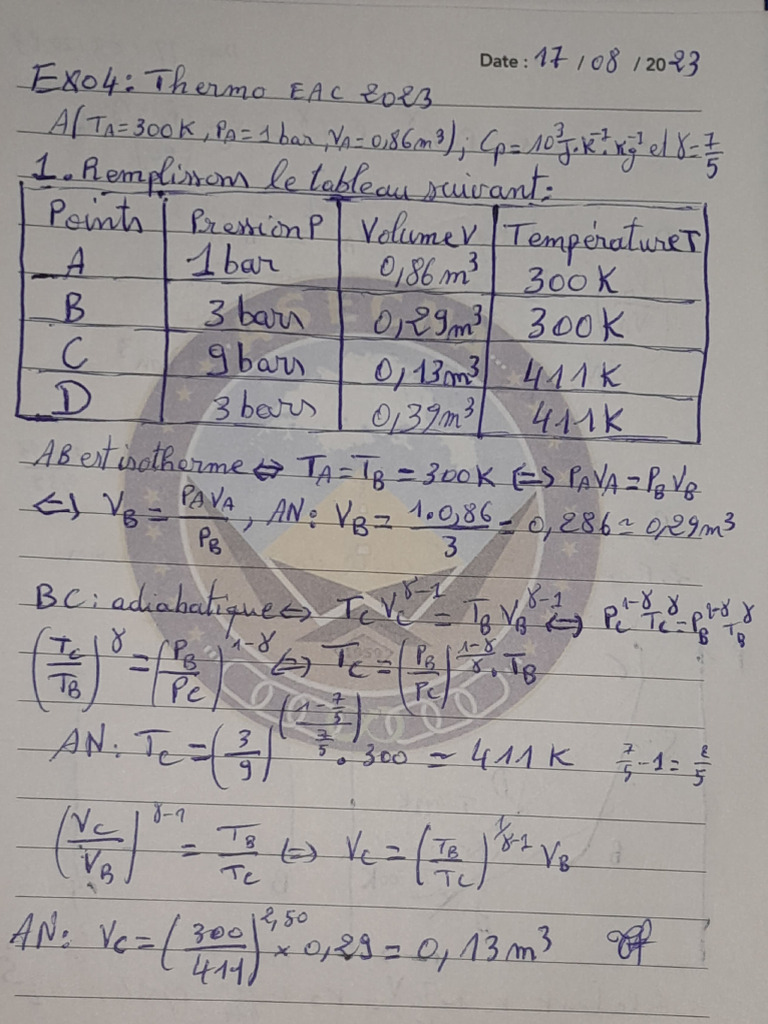 Date : 17 / 08 / 2023
EXO4: Thermo EAC 2023
A(TA=300K, PA=1bar, VA=0,86m³); Cp=10³J·K⁻¹·Kg⁻¹ et γ=7/5
1. Remplissons le tableau suivant:
Points Pression P Volume V Température T
A 1 bar 0,86m³ 300K
B 3 bars 0,29m³ 300K
C 9 bars 0,13m³ 411K
D 3 bars 0,39m³ 411K
AB est isotherme ⇔ TA=TB=300K ⇔ PAVA=PBVB
⇔ VB = PAVA/PB, AN: VB = 1·0,86/3 = 0,286 ≃ 0,29m³
BC: adiabatique ⇔ TCVC^γ-1 = TBVB^γ-1 ⇔ PC^1-γ TC^γ = PB^1-γ TB^γ
(TC/TB)^γ = (PB/PC)^1-γ ⇔ TC = (PB/PC)^(1-γ)/γ · TB
AN: TC = (3/9)^((1-7/5)/(7/5)) · 300 ≃ 411K 7/5 - 1 = 2/5
(VC/VB)^γ-1 = TB/TC ⇔ VC = (TB/TC)^1/γ-1 VB
AN: VC = (300/411)^2,50 × 0,29 = 0,13m³